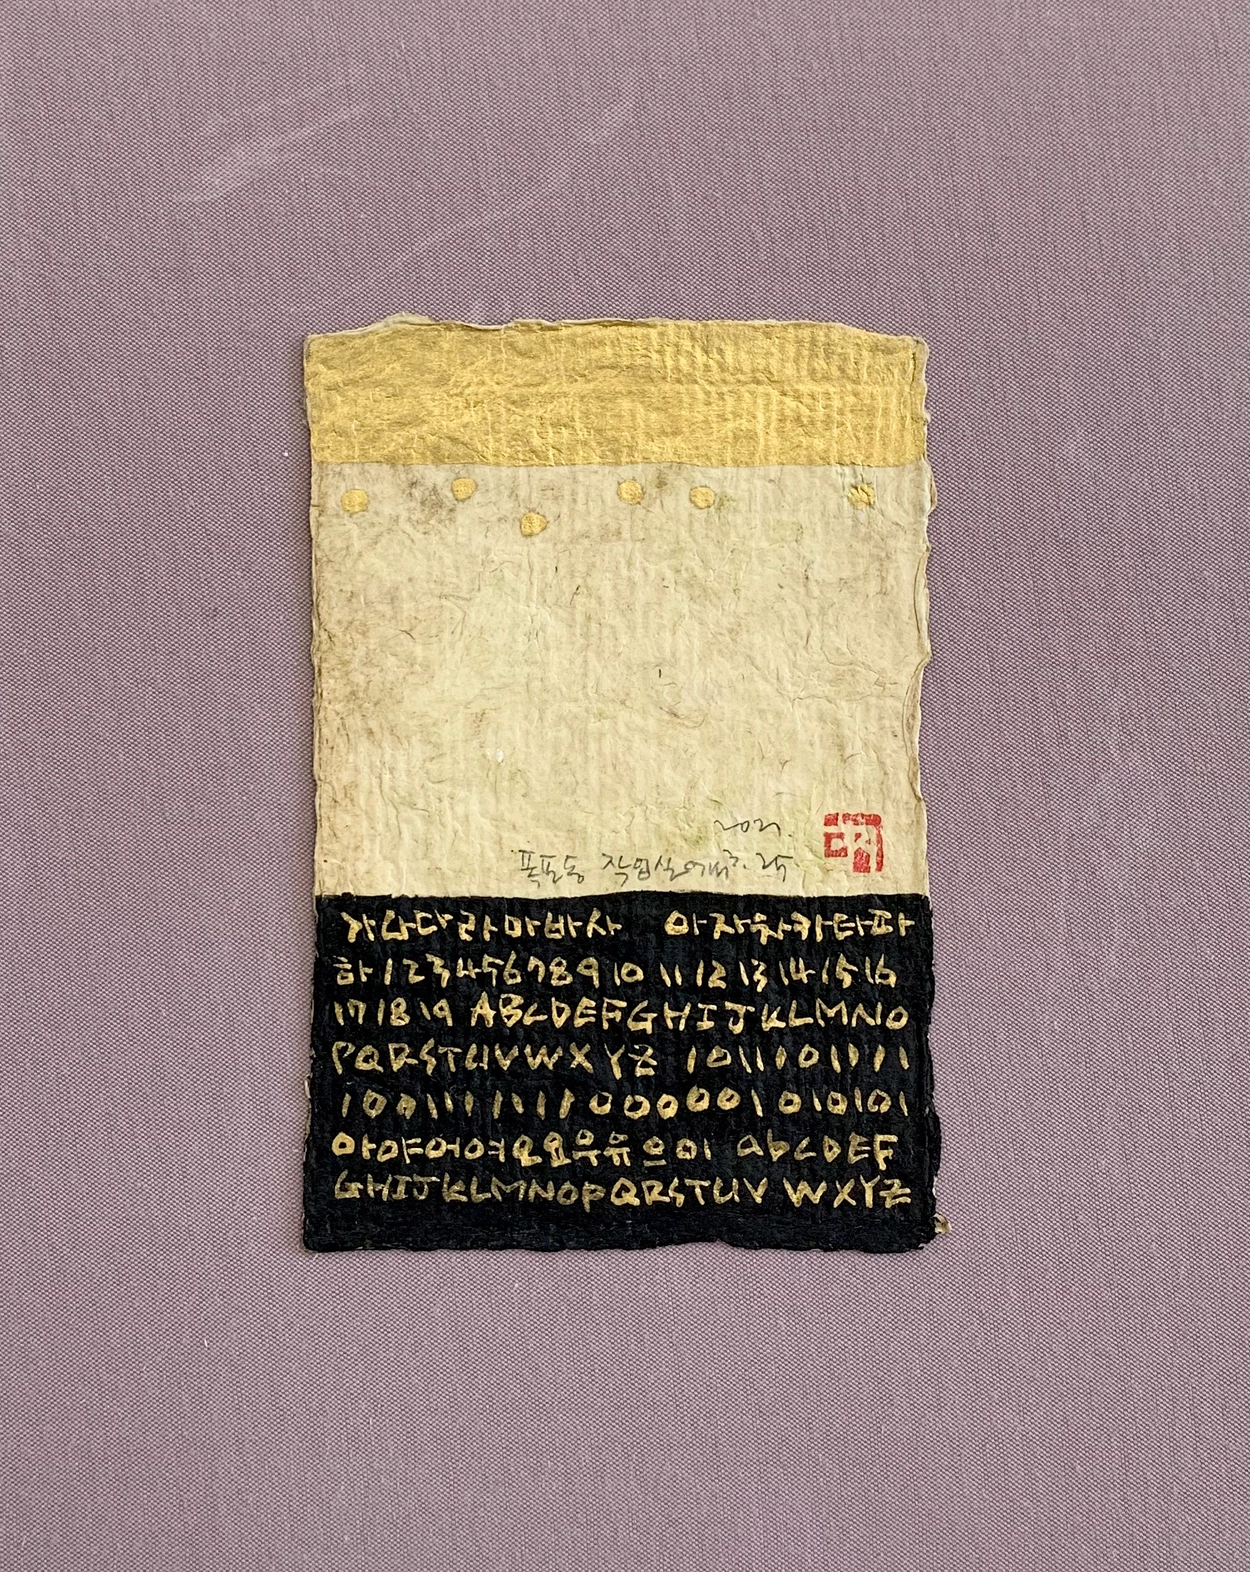 2021.
작업실에서
가나다라마바사 아자차카타파
하 1 2 3 4 5 6 7 8 9 10 11 12 13 14 15 16
17 18 19 ABCDEFGHIJKLMNO
PQRSTUVWXYZ 1011101111
10011111110000001010101
아야어여오요우유으이 abcDEF
GHIJKLMNOPQRSTUVWXYZ